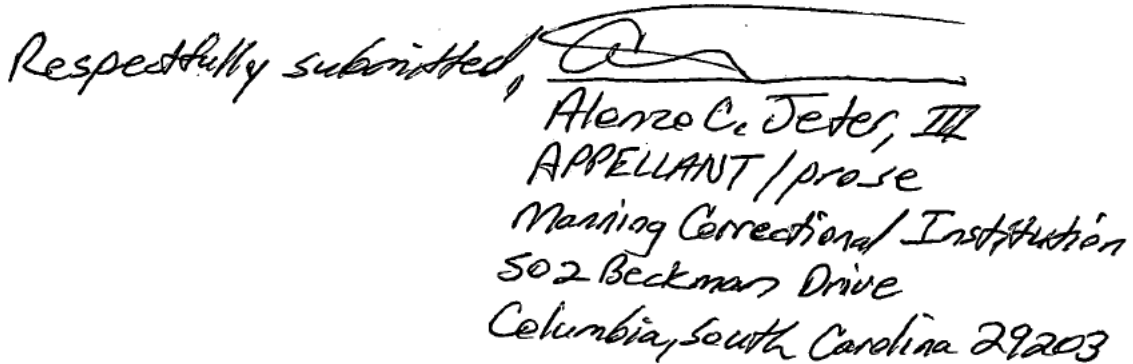 Respectfully submitted,
Alonzo C. Jeter, III
APPELLANT / prose
Manning Correctional Institution
502 Beckman Drive
Columbia, South Carolina 29203